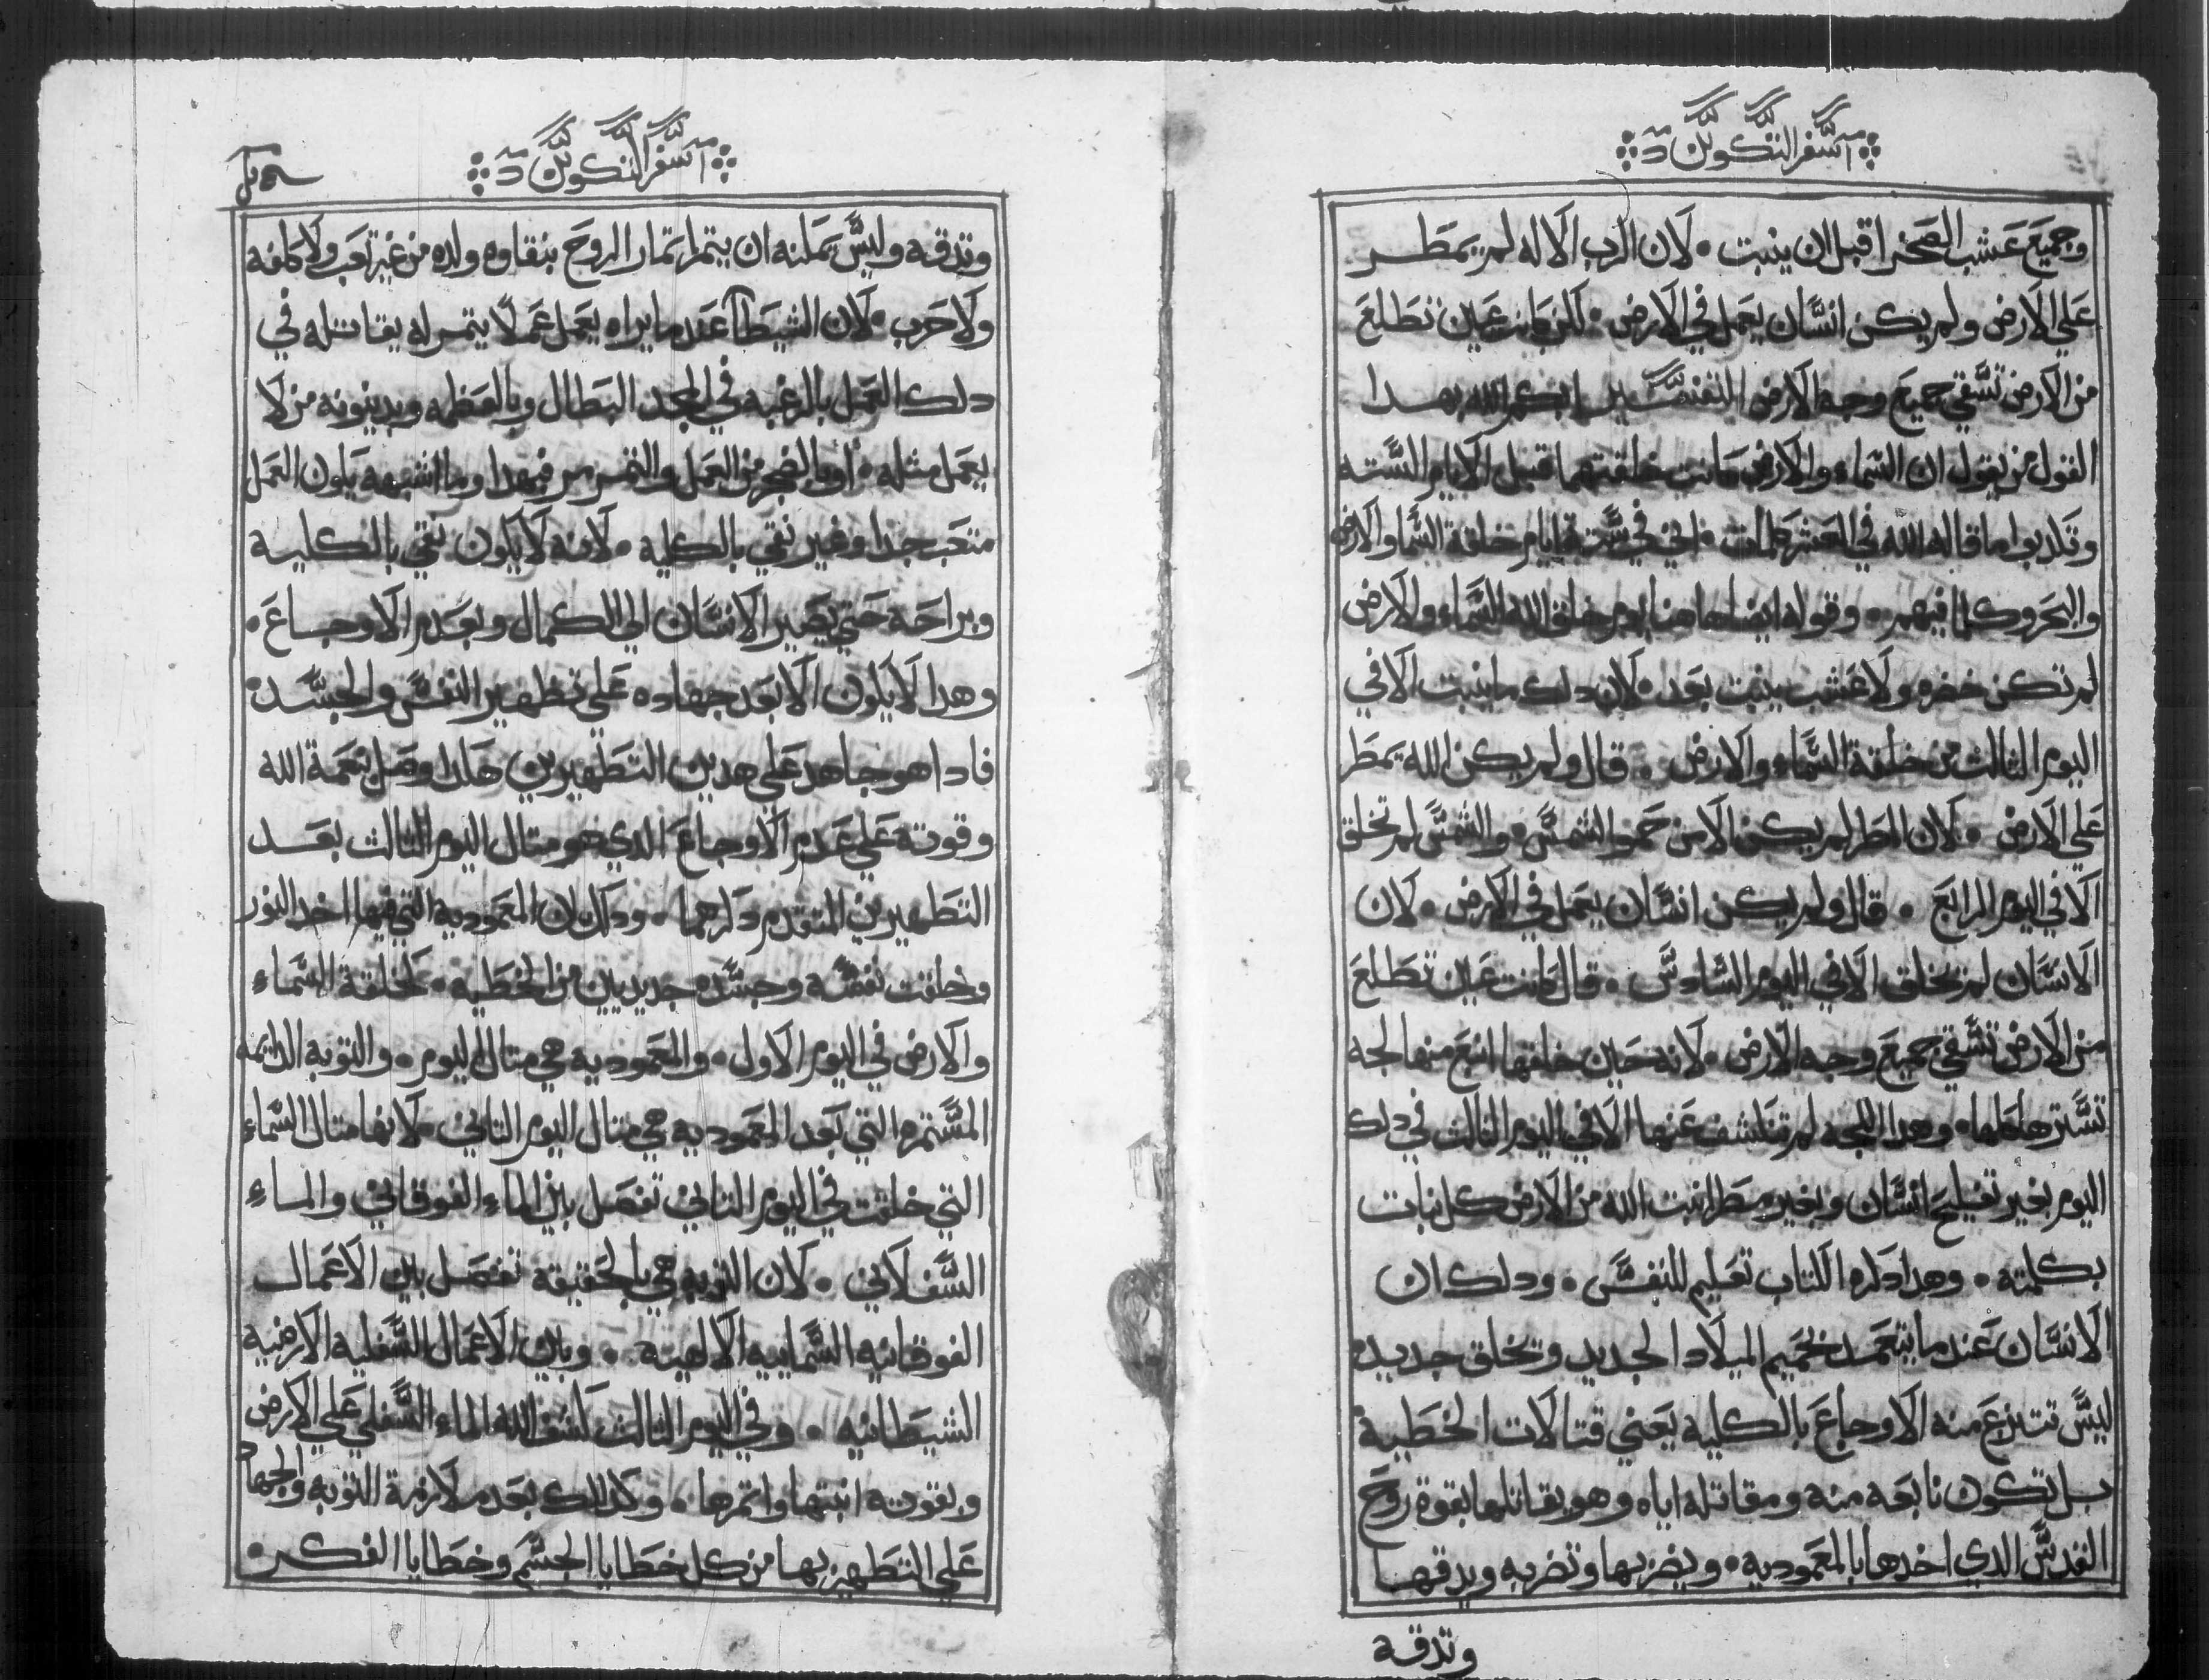 سفر التكوين
وجميع عشب الصحرا قبل ان ينبت • لان الرب الاله لم يمطر
علي الارض ولم يكن انسان يعمل في الارض • لكن كانت عين تطلع
من الارض تسقي جميع وجه الارض التفسير ابكم الله بهدا
القول من يقول ان السماء والارض كانت خلقتهما قبل الايام السته
وتكدبوا ما قاله الله في العشر كلمات • اني في ستة ايام خلقة السما والارض
والبحر وكلما فيهم • وقوله ايضا هاهنا يوم خلق الله السماء والارض
لم تكن خضره ولا عشب ينبت بعد • لان دلك ما ينبت الا في
اليوم التالت من خلقة السماء والارض • قال ولم يكن الله يمطر
علي الارض • لان المطر لم يكن الا من حمو الشمس • والشمس لم تخلق
الا في اليوم الرابع • قال ولم يكن انسان يعمل في الارض • لان
الانسان لم يخلق الا في اليوم السادس • قال كانت عين تطلع
من الارض تسقي جميع وجه الارض • لانه حين خلقها انبع منها لجة
تسترها كلها • وهدا اللجه لم تنكشف عنها الا في اليوم التالت في دلك
اليوم بغير تفليح انسان وبغير مطر انبت الله من الارض كل نبات
بكلمته • وهدا دكره الكتاب تعليم للنفس • ودلك ان
الانسان عند ما يتعمد بحميم الميلاد الجديد وتخلق جديده
ليس تنتزع منه الاوجاع بالكليه يعني قتالات الخطية
بل تكون نابعه منه ومقاتله اياه وهو يقاتلها بقوة روح
القدس الدي اخدها بالمعموديه • ويضربها وتضربه ويدقها
وتدقه
سفر التكوين
وتدقه وليس يمكنه ان يتمر اتمار الروح بنقاوه ولده من غير تعب ولا كلفه
ولا حرب • لان الشيطان عند ما يراه يعمل عملا يتمر له يقاتله في
دلك العمل بالرغبه في المجد البطال وبالعظمه وبدينونه من لا
يعمل متله • او بالضجر من العمل والتقمر فبهدا وما اشبهه يكون العمل
متعب جدا وغير نقي بالكليه • لانه لا يكون نقي بالكليه
وبراحه حتي يصير الانسان الي الكمال وبعدم الاوجاع •
وهدا لا يكون الا بعد جهاده علي تطهير النفس والجسد •
فادا هو جاهد علي هدين التطهيرين هكدا وصل بنعمة الله
وقوته علي عدم الاوجاع الدي هو متال اليوم التالت بعد
التطهيرين المتقدم دكرهما • ودلك لان المعموديه التي فيها اخد النور
وخلقت نفسه وجسده جديدين من الخطيه • كخلقة السماء
والارض في اليوم الاول • والمعموديه هي متال اليوم • والتوبه الدايمه
المستمره التي بعد المعموديه هي متال اليوم التاني • لانها متال السماء
التي خلقت في اليوم التاني تفصل بين الماء الفوقاني والماء
السفلاني • لان التوبه هي بالحقيقه تفصل بين الاعمال
الفوقانيه السماييه الالهيه • وبين الاعمال السفليه الارضيه
الشيطانيه • وفي اليوم التالت كشف الله الماء السفلي علي الارض
وبقوته انبتها واتمرها • وكدلك بعد ملازمة التوبه والجهاد
علي التطهير بها من كل خطايا الجسم وخطايا الفكر •